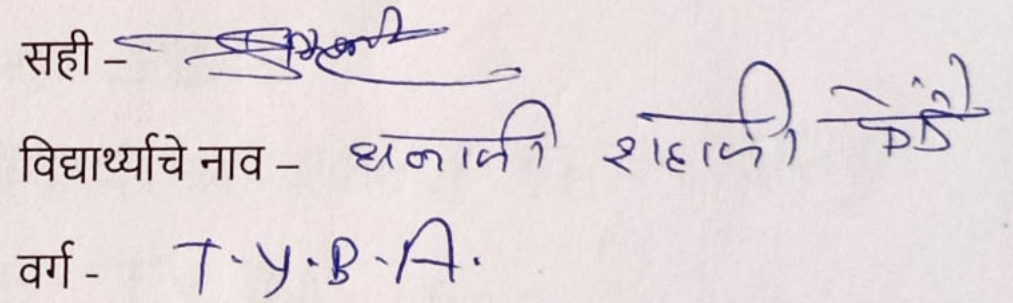 सही -
विद्यार्थ्याचे नाव - धनाजी शहाजी
वर्ग - T.Y.B.A.